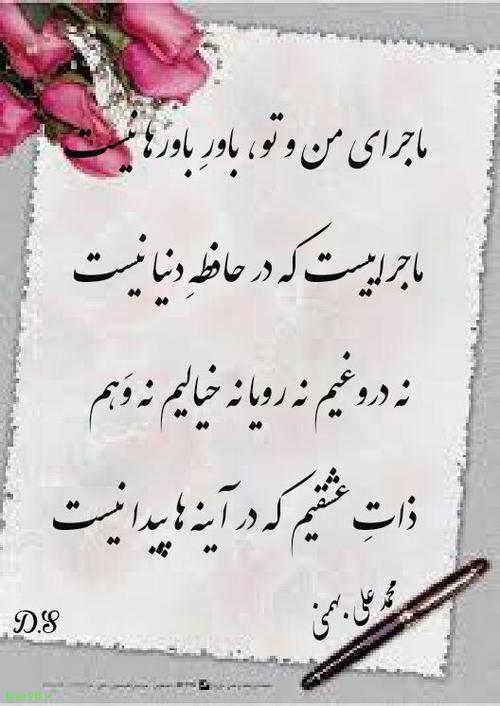 ماجرای من و تو، باورِ باورها نیست
ماجراییست که در حافظهِ دنیا نیست
نه دروغیم نه رویا نه خیالیم نه وَهم
ذاتِ عشقیم که در آینه ها پیدا نیست
محمد علی بهمنی
D.S